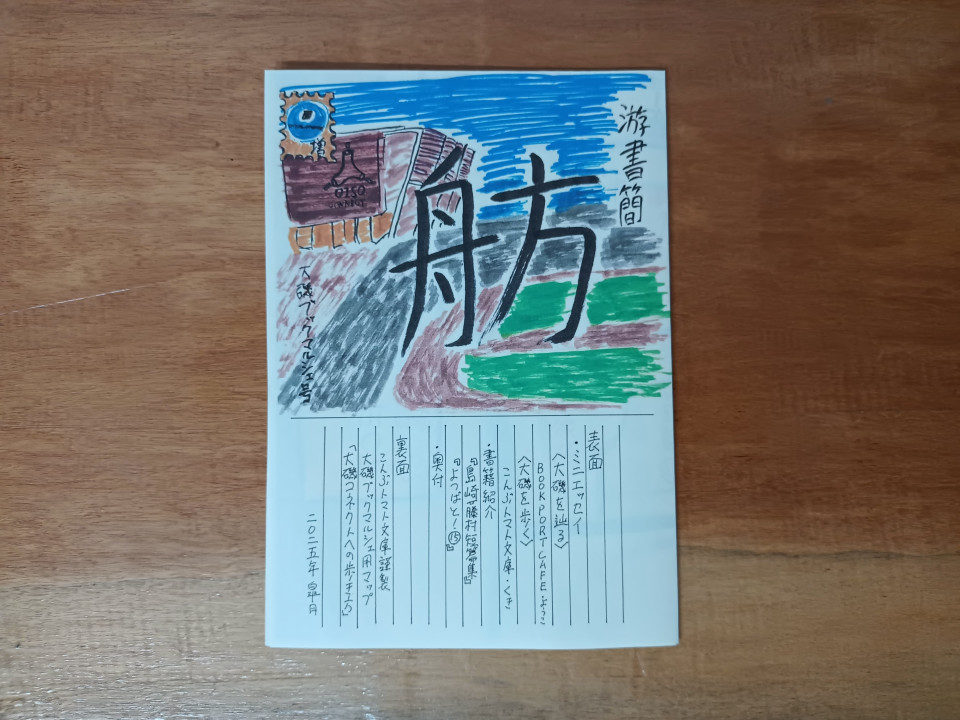 游書簡
舫
OISO
CONNECT
大磯ブックマルシェ号
表面
・ミニエッセイ
〈大磯を辿る〉
BOOK PORT CAFE・ようこ
〈大磯を歩く〉
こんぶトマト文庫・くき
・書籍紹介
『島崎藤村短篇集』
『よつばと！⑮』
・奥付
裏面
こんぶトマト文庫謹製
大磯ブックマルシェ用マップ
「大磯コネクトへの歩き方」
二〇二五年 皐月